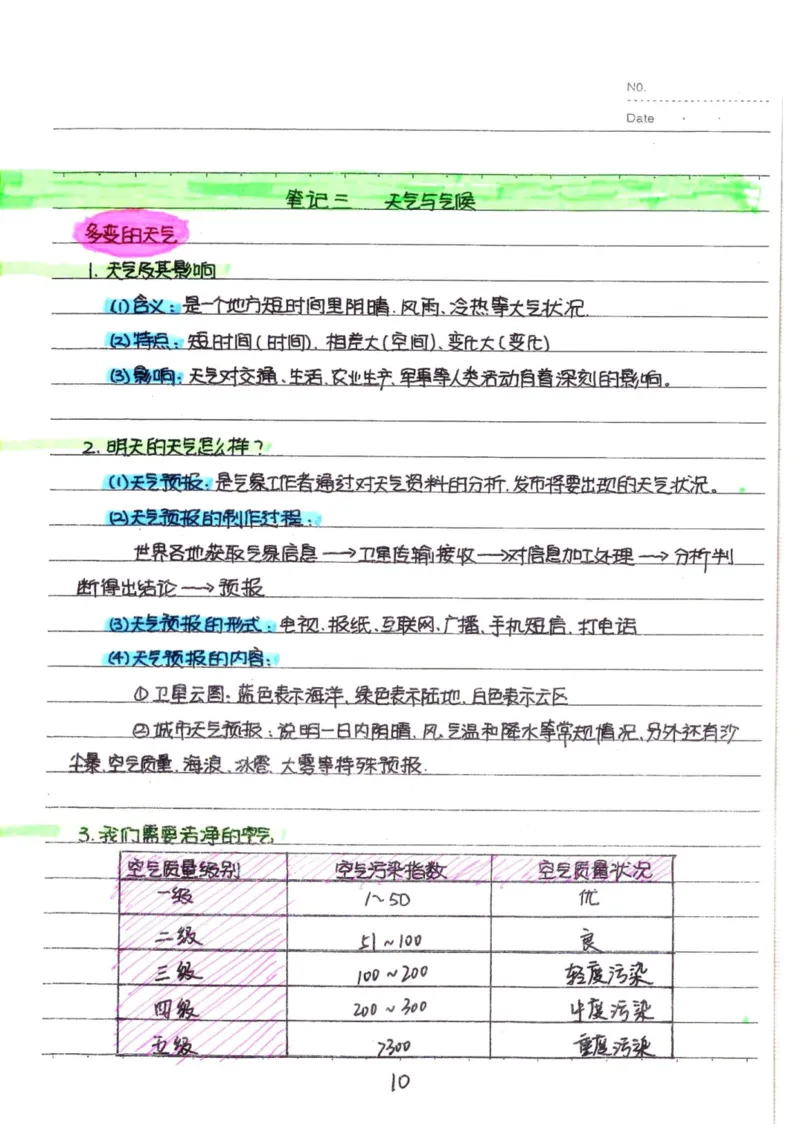 NO.
Date
笔记三 天气与气候
多变的天气
1. 天气及其影响
(1)含义:是一个地方短时间里阴晴、风雨、冷热等大气状况.
(2)特点:短时间(时间)、相差大(空间)、变化大(变化)
(3)影响:天气对交通、生活、农业生产、军事等人类活动有着深刻的影响。
2. 明天的天气怎么样?
(1)天气预报:是气象工作者通过对天气资料的分析,发布将要出现的天气状况。
(2)天气预报的制作过程:
世界各地获取气象信息→卫星传输接收→对信息加工处理→分析判
断得出结论→预报
(3)天气预报的形式:电视、报纸、互联网、广播、手机短信、打电话
(4)天气预报的内容:
①卫星云图:蓝色表示海洋,绿色表示陆地,白色表示云区
②城市天气预报:说明一日内阴晴、风、气温和降水等常规情况,另外还有沙
尘暴、空气质量、海浪、冰雹、大雾等特殊预报.
3. 我们需要洁净的空气
空气质量级别 空气污染指数 空气质量状况
一级 1~50 优
二级 51~100 良
三级 100~200 轻度污染
四级 200~300 中度污染
五级 >300 重度污染
10